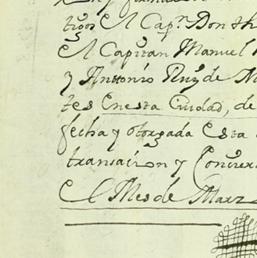 tigos el Cap.n Don
el Capitan Manuel
y Anttonio Ruy de
tes Enesta Ciudad, de
fecha y otorgada Esta
transacion y Conver
el Mes de Marz